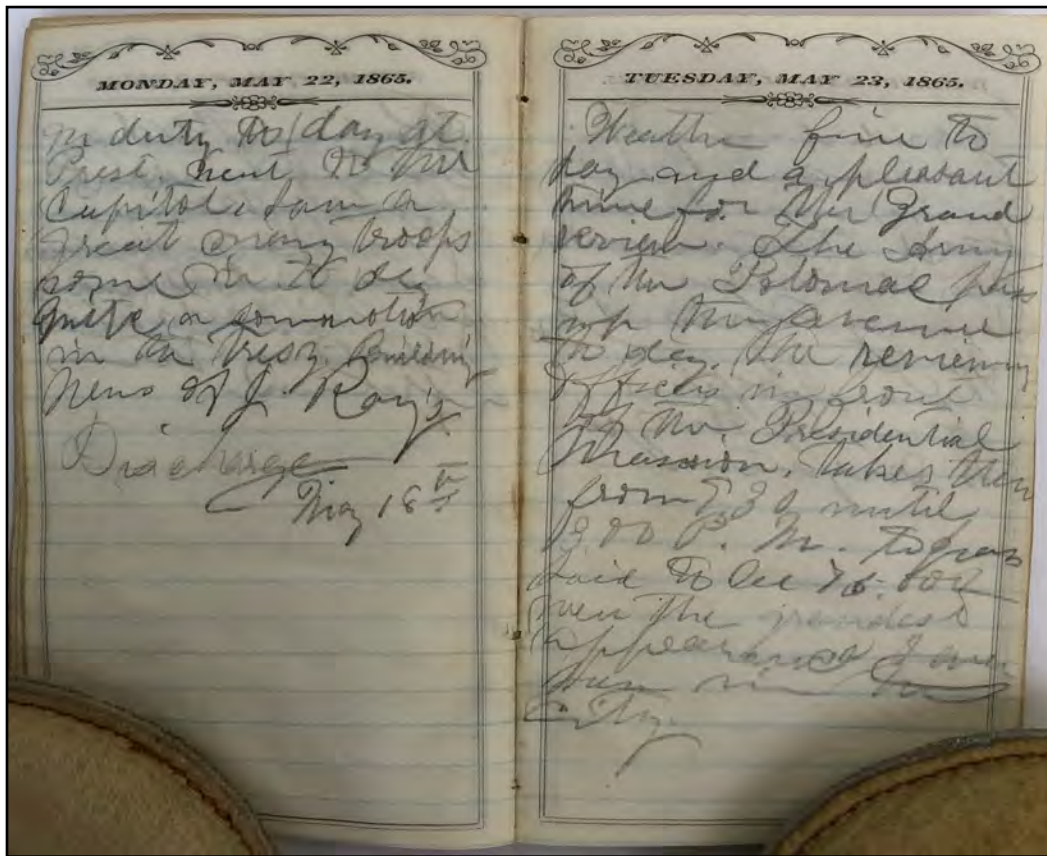 MONDAY, MAY 22, 1865.
on duty to day at
Prest. Went to the
Capitol. Saw a
great many troops
come in to day
Quite a commotion
in the Tresy. Building
News of J. Ray's
Discharge
May 18th
TUESDAY, MAY 23, 1865.
Weather fine to
day and a pleasant
time for the Grand
review. The Army
of the Potomac pass
up the avenue
to day. the reviewing
officers in front
of the Presidential
Mansion. takes them
from until
3.00 P. M. to pass
Said to be 75.000
men the grandest
appearance I ever
seen in this
City.